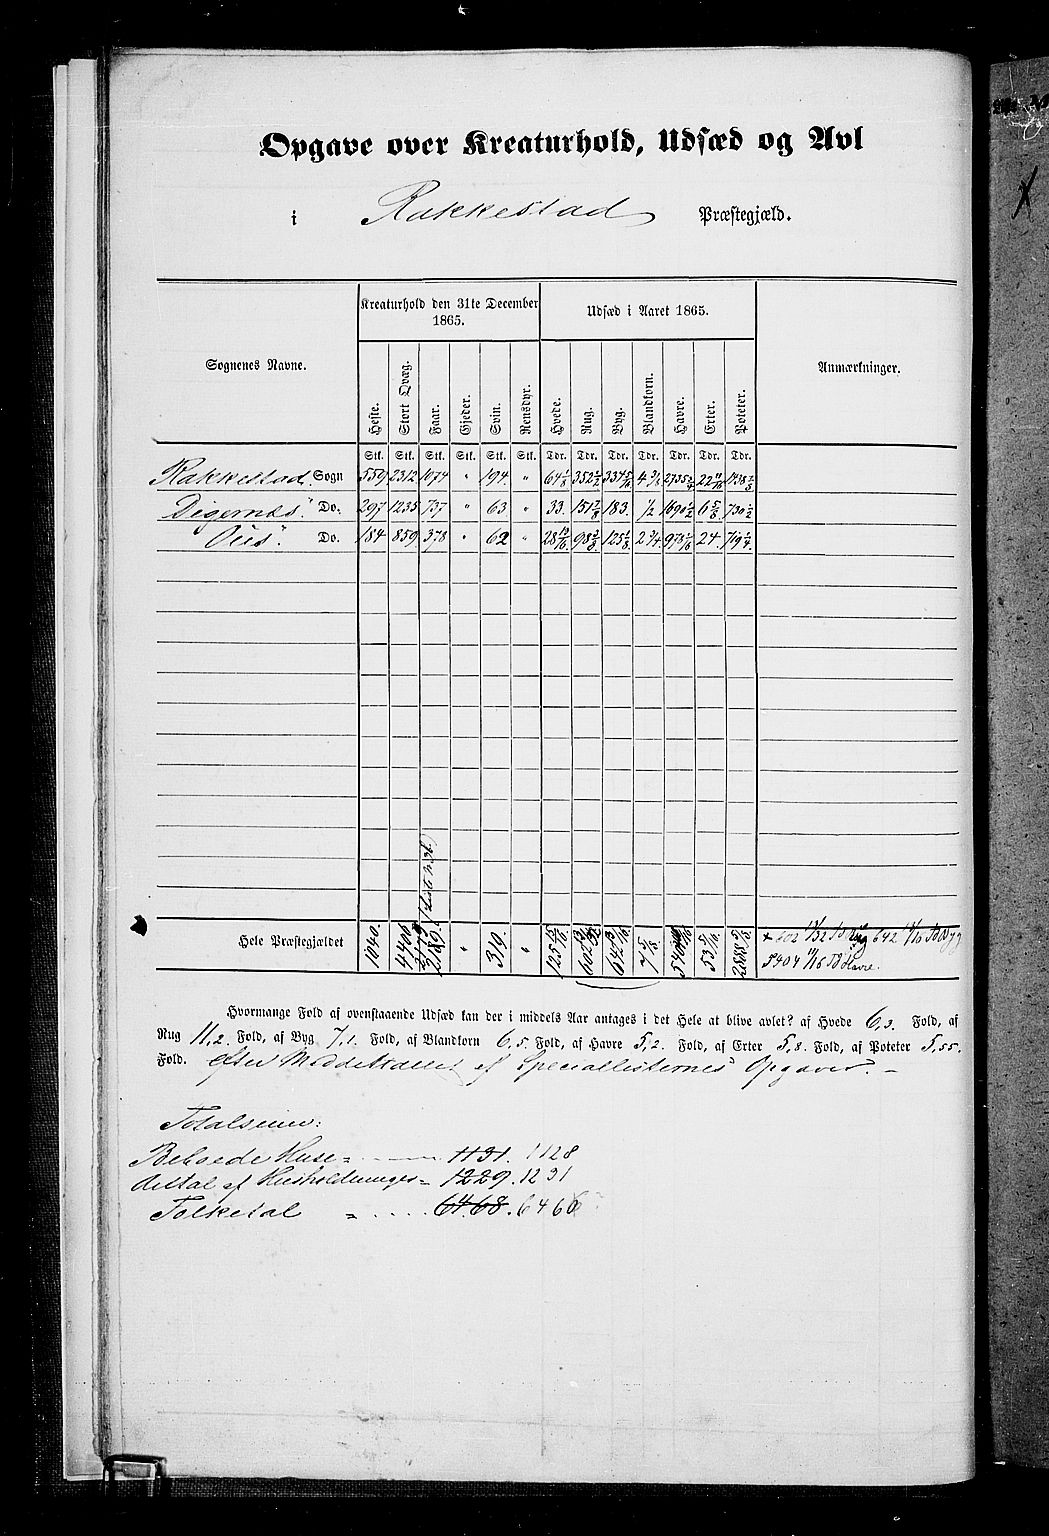 Opgave over Kreaturhold, Udsæd og Avl
i Rakkestad Præstegjæld.
Sognenes Navne. Kreaturhold den 31te December 1865. Udsæd i Aaret 1865. Anmærkninger.
Heste. Stort Qvæg. Faar. Gjeder. Svin. Rensdyr. Hvede. Rug. Byg. Blandkorn. Havre. Erter. Poteter.
Stk. Stk. Stk. Stk. Stk. Stk. Tdr. Tdr. Tdr. Tdr. Tdr. Tdr. Tdr.
Rakkestad Sogn 559 2312 1074 " 194. " 64 1/8 352 1/2 334 5/16 4 3/8 2735 3/4 22 11/16 1438 3/8
Degernæs " Do. 297 1235 737 " 63 " 33. 151 7/8 183. 1/2 1690 1/2 6 5/8 730 1/2
Öiis " Do. 184 859 378 " 62 " 28 13/16 98 3/8 125 1/8 2 3/4 978 7/16 24. 719 1/4
Hele Præstegjældet 1040. 4406 2189. " 319. " 125 15/16 602 642 7/16 7 5/8 5404 53 5/16 2888 1/8
+ 602 13/32 Td Rug 642 7/16 Td Byg
5404 11/16 Td Havre.
Hvormange Fold af ovenstaaende Udsæd kan der i middels Aar antages i det Hele at blive avlet? af Hvede 6,3. Fold, af
Rug 11,2. Fold, af Byg 7,1. Fold, af Blandkorn 6,5. Fold, af Havre 5,2. Fold, af Erter 5,8. Fold, af Poteter 5,55.
Fold. efter Middeltallet af Speciallisternes Opgaver. –
Totalsum:
Beboede Huse = 1131. 1128
Antal af Husholdninger = 1229. 1231
Folketal = 6468. 6466